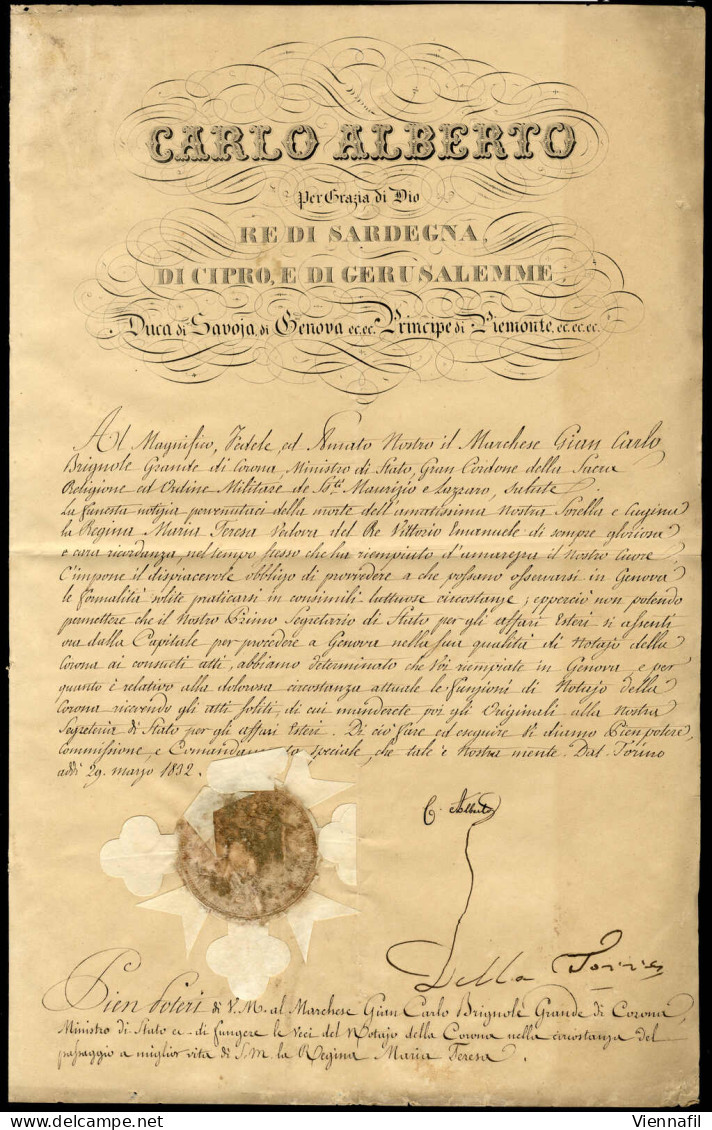 CARLO ALBERTO
Per Grazia di Dio
RE DI SARDEGNA,
DI CIPRO, E DI GERUSALEMME,
Duca di Savoja, di Genova ec. ec. Principe di Piemonte, ec. ec. ec.
Al Magnifico, Fedele, ed Amato Nostro il Marchese Gian Carlo
Brignole Grande di Corona, Ministro di Stato, Gran Cordone della Sacra
Religione ed Ordine Militare de Sti. Maurizio e Lazzaro, Salute.
La funesta notizia pervenutaci della morte dell'amatissima Nostra Sorella e Cugina
la Regina Maria Teresa Vedova del Re Vittorio Emanuele di sempre gloriosa
e cara ricordanza, nel tempo stesso che ha riempiuto d'amarezza il Nostro Cuore
C'impone il dispiacevole obbligo di provvedere a che possano osservarsi in Genova
le formalità solite praticarsi in consimili luttuose circostanze; epperciò non potendo
permettere che il Nostro Primo Segretario di Stato per gli affari Esteri si assenti
ora dalla Capitale per procedere a Genova nella sua qualità di Notajo della
Corona ai consueti atti, abbiamo determinato che Voi riempiate in Genova e per
quanto è relativo alla dolorosa circostanza attuale le funzioni di Notajo della
Corona ricevendo gli atti soliti, di cui manderete poi gli Originali alla Nostra
Segreteria di Stato per gli affari Esteri. Di ciò fare ed eseguire Vi diamo Pien potere,
Commissione, e Comandamento speciale, che tale è Nostra mente. Dat. Torino
addì 29. marzo 1832.
C. Alberto
Della Torre
Pien Poteri di V. M. al Marchese Gian Carlo Brignole Grande di Corona,
Ministro di Stato di fungere le veci del Notajo della Corona nella circostanza del
passaggio a miglior vita di S. M. la Regina Maria Teresa.
Viennafil